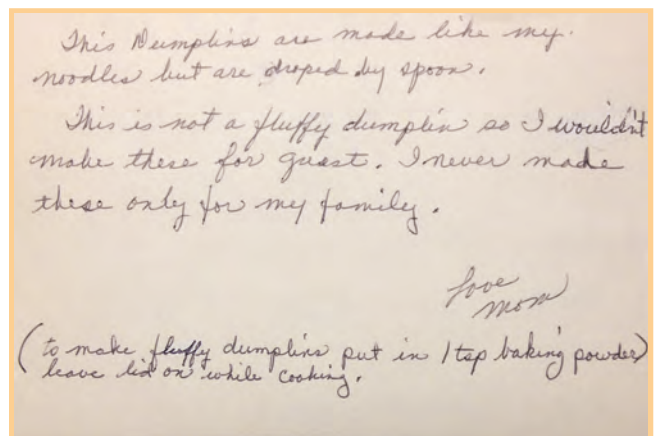 This Dumplins are made like my.
noodles but are droped by spoon.
This is not a fluffy dumplin so I wouldn't
make these for guest. I never made
these only for my family.
Love
Mom
(to make fluffy dumplins put in 1 tsp baking powder)
leave lid on while cooking.